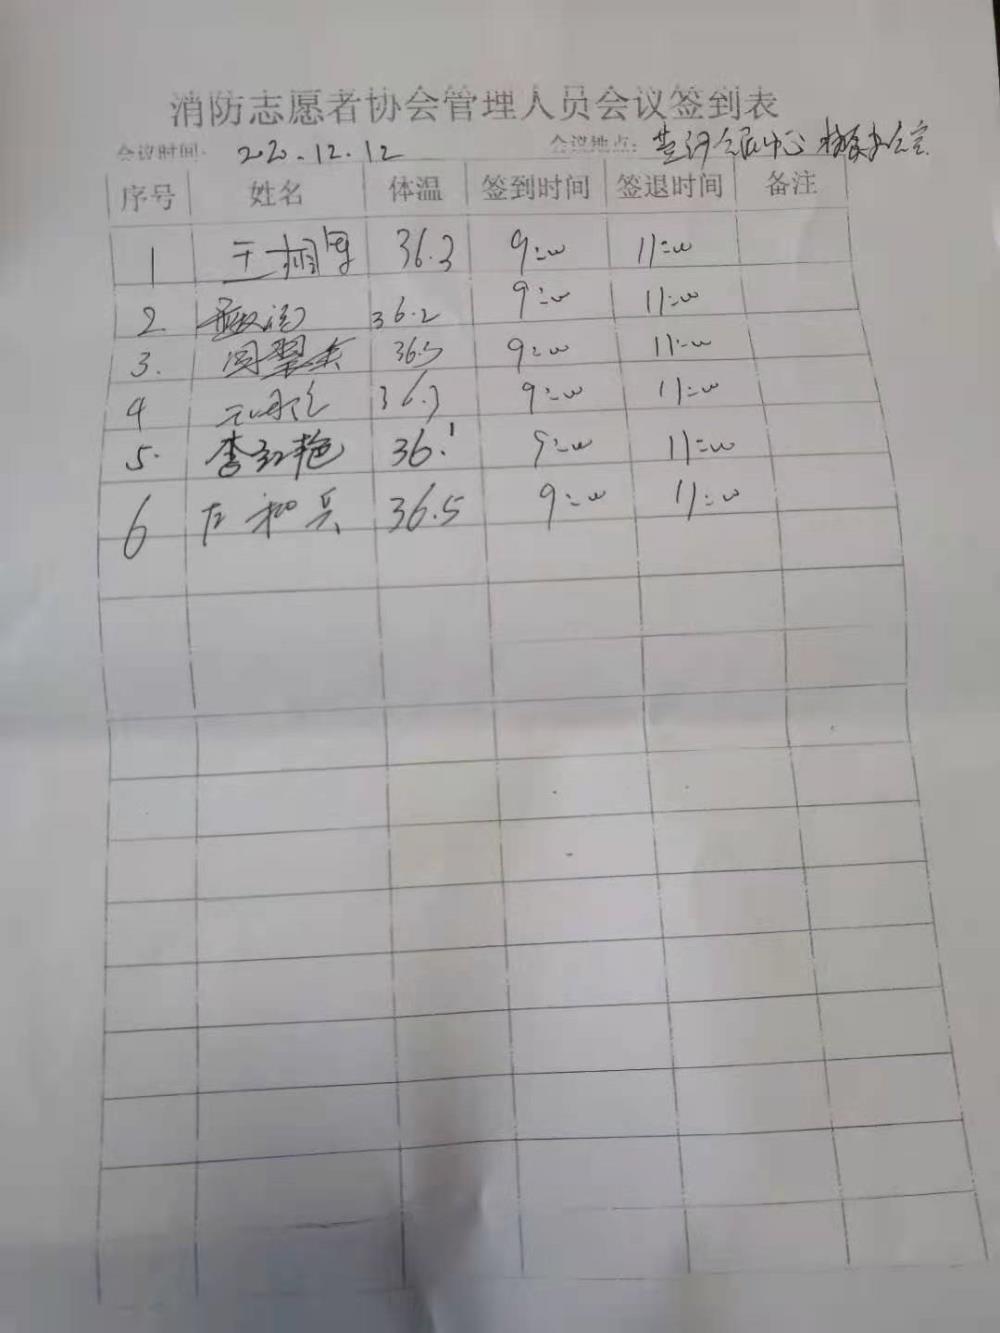 消防志愿者协会管理人员会议签到表
会议时间: 2020.12.12 会议地点: 中心 办公室
序号 姓名 体温 签到时间 签退时间 备注
1 王 36.3 9:00 11:00
2. 36.2 9:00 11:00
3. 周翠 36.5 9:00 11:00
4 36.3 9:00 11:00
5. 李红艳 36.1 9:00 11:00
6 左和兵 36.5 9:00 11:00